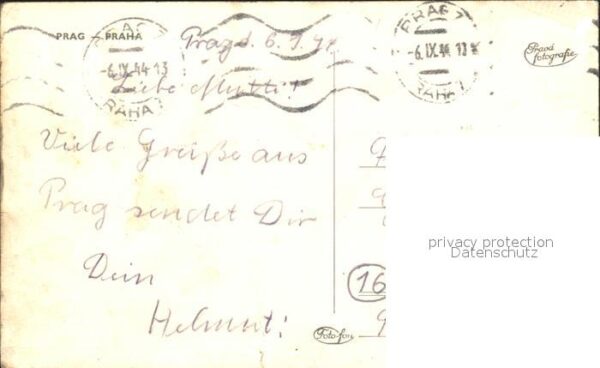 PRAG — PRAHA
PRAG 7
-6.IX.44-13
PRAHA
PRAG 7
-6.IX.44-13
PRAHA
Pravá
fotografie
Prag d. 6.9.44
Liebe Mutti!
Viele Grüße aus
Prag sendet Dir
Dein
Helmut!
16
Foto-fon
privacy protection
Datenschutz